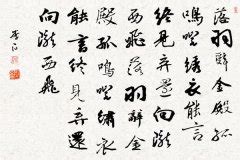 落羽辭金殿孤
鳴咤繡衣能言
終見棄還向隴
西飛落羽辭金
殿孤鳴咤繡衣
能言終見棄還
向隴西飛